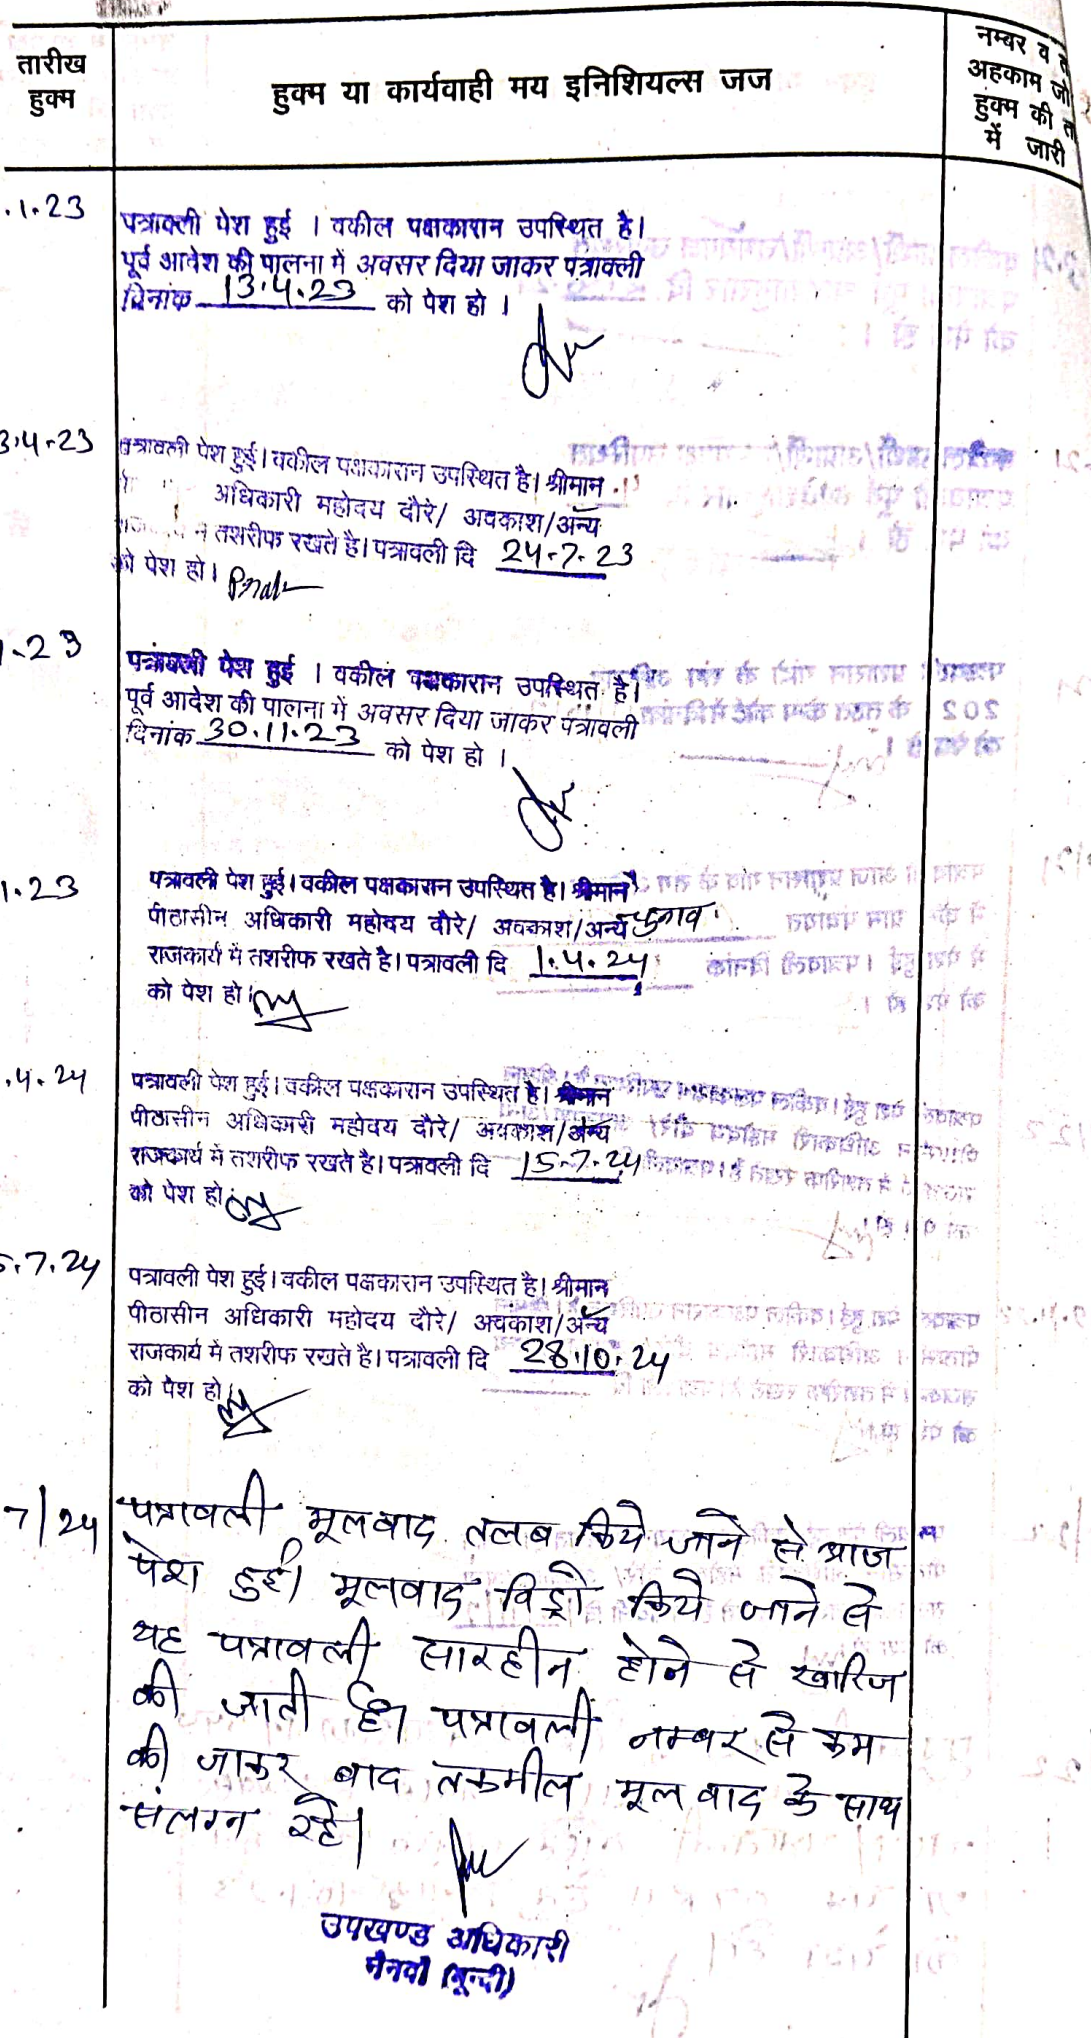 तारीख
हुक्म
हुक्म या कार्यवाही मय इनिशियल्स जज
नम्बर व
अहकाम जो
हुक्म की
में जारी
.1.23
पत्रावली पेश हुई । वकील पक्षकारान उपस्थित है।
पूर्व आदेश की पालना में अवसर दिया जाकर पत्रावली
दिनांक 13.4.23 को पेश हो ।
3.4.23
पत्रावली पेश हुई। वकील पक्षकारान उपस्थित है। श्रीमान
अधिकारी महोदय दौरे/ अवकाश/अन्य
में तशरीफ रखते है। पत्रावली दि 24.7.23
को पेश हो।
.23
पत्रावली पेश हुई । वकील पक्षकारान उपस्थित है।
पूर्व आदेश की पालना में अवसर दिया जाकर पत्रावली
दिनांक 30.11.23 को पेश हो ।
1.23
पत्रावली पेश हुई। वकील पक्षकारान उपस्थित है। श्रीमान
पीठासीन अधिकारी महोदय दौरे/ अवकाश/अन्य चुनाव
राजकार्य में तशरीफ रखते है। पत्रावली दि 1.4.24
को पेश हो।
.4.24
पत्रावली पेश हुई। वकील पक्षकारान उपस्थित है। श्रीमान
पीठासीन अधिकारी महोदय दौरे/ अवकाश/अन्य
राजकार्य में तशरीफ रखते है। पत्रावली दि 15.7.24
को पेश हो।
5.7.24
पत्रावली पेश हुई। वकील पक्षकारान उपस्थित है। श्रीमान
पीठासीन अधिकारी महोदय दौरे/ अवकाश/अन्य
राजकार्य में तशरीफ रखते है। पत्रावली दि 28.10.24
को पेश हो।
7/24
पत्रावली मूलवाद तलब किये जाने से आज
पेश हुई। मूलवाद विड्रो किये जाने से
यह पत्रावली सारहीन होने से खारिज
की जाती है। पत्रावली नम्बर से कम
की जाकर बाद तकमील मूल वाद के साथ
संलग्न रहे।
उपखण्ड अधिकारी
नैनवाँ (बून्दी)